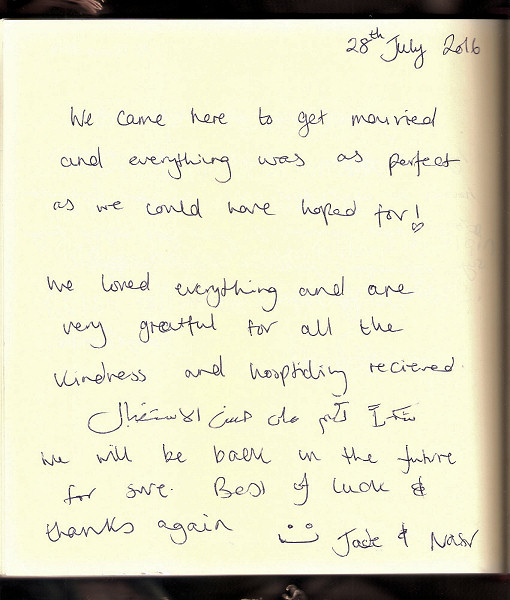 28th July 2016
We came here to get married
and everything was as perfect
as we could have hoped for!
We loved everything and are
very greatful for all the
kindness and hosptidiny recieved.
شكراً لكم على حسن الاستقبال
We will be back in the future
for sure. Best of luck &
thanks again
Jade & Nasr